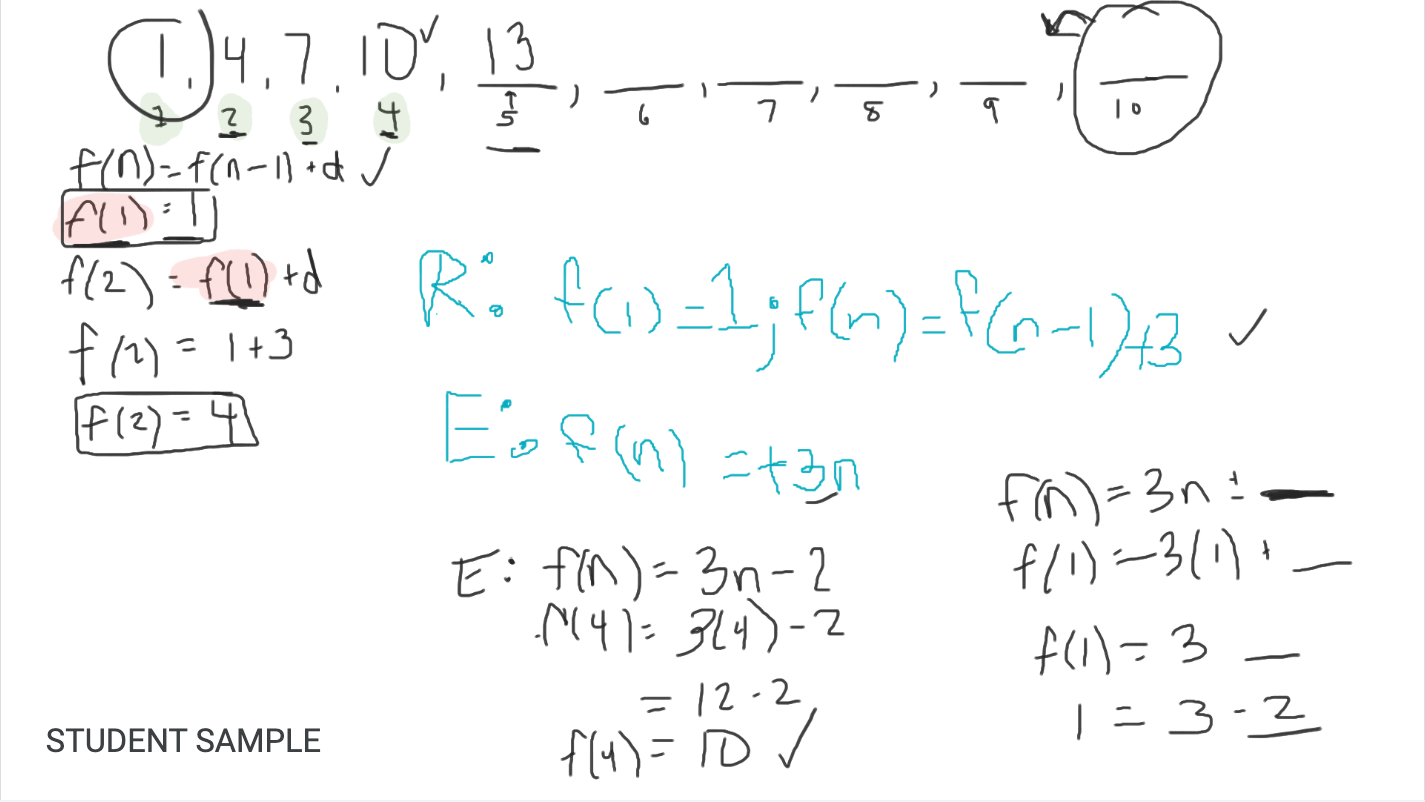 1, 4, 7, 10 ✓, 13, __, __, __, __, __
1 2 3 4 5 6 7 8 9 10
f(n) = f(n-1) + d ✓
f(1) = 1
f(2) = f(1) + d
f(2) = 1+3
f(2) = 4
R: f(1) = 1; f(n) = f(n-1)+3 ✓
E: f(n) = +3n
E: f(n) = 3n - 2
f(4) = 3(4) - 2
= 12 - 2
f(4) = 10 ✓
f(n) = 3n ± __
f(1) = 3(1) + __
f(1) = 3 __
1 = 3 - 2
STUDENT SAMPLE